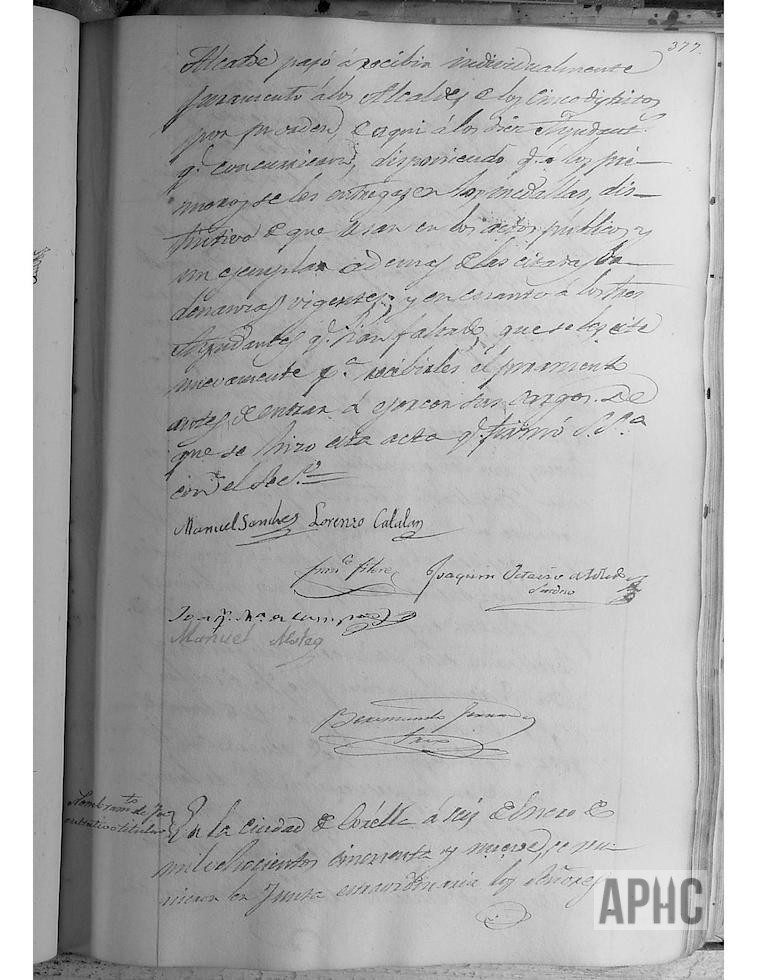 377.
Alcalde pasó á recibir individualmente
juramento á los Alcaldes de los cinco distritos
por su orden, é aqui á los diez Ayudant.
q.e concurrieron, disponiendo q.e á los pri-
meros se les entregasen las medallas, dis-
tintivo de que usan en los actos públicos y
un ejemplar ademas de las citadas Or-
denanzas vigentes; y en cuanto á los tres
Ayudantes q.e han faltado, que se les cite
nuevamente p.a recibirles el juramento
antes de entrar á ejercer sus cargos. De
que se hizo esta acta q.e firmó S.S.a
con el Sec.rio
Manuel Sanchez Lorenzo Catalan
Joaquin Octavio de Toledo
Manuel Mateo
Beremundo
Nombram.to de
En la ciudad de Corella á seis de Enero de
mil ochocientos cincuenta y nueve, se reu-
nieron en Junta extraordinaria los Señores
APHC